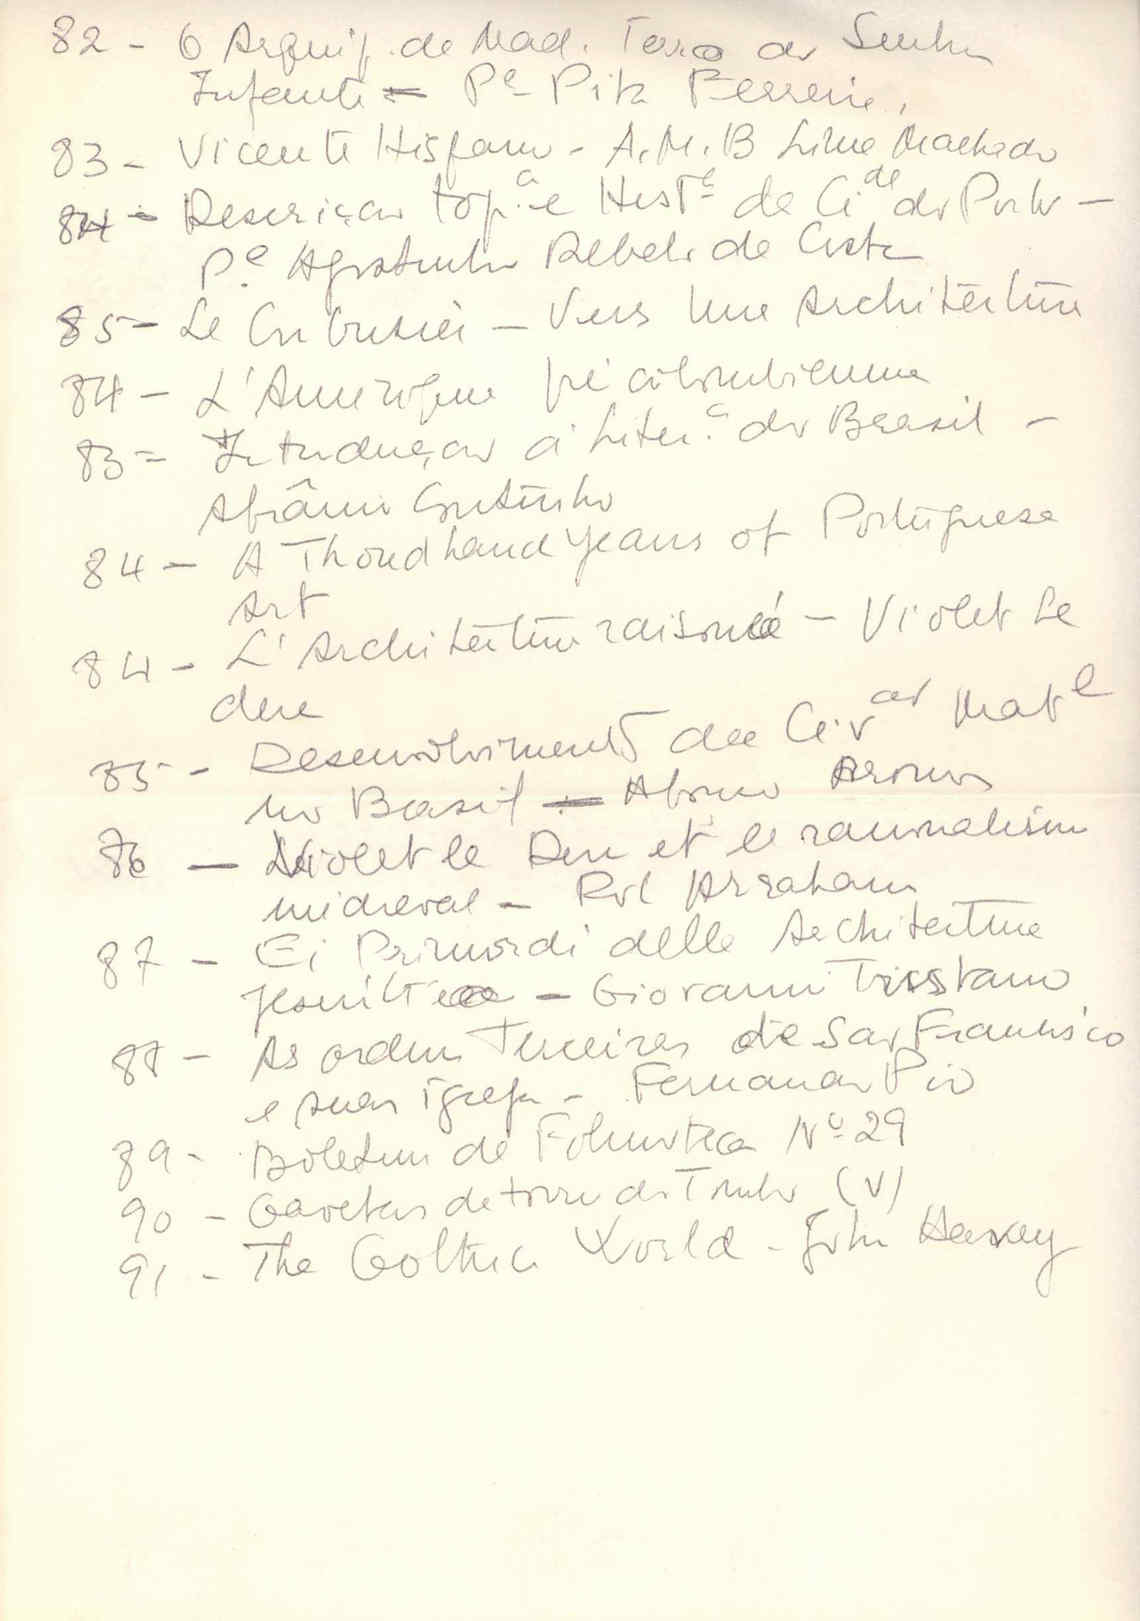 82 - O Arquip. de Mad. Terra do Senhor
Infante - Pe Pita Ferreira,
83 - Vicente Hispano - A. M. B Lima Machado
84 - Descrição top.ca e Histª da Cide do Porto -
P.e Agostinho Rebelo da Costa
85 - Le Corbusier - Vers Une Architecture
84 - L'Amerique précolombienne
83 - Introdução á Liter.ª do Brasil -
Afrânio Coutinho
84 - A Thoudhand years of Portuguese
Art
84 - L'Architecture raisonée - Violet Le
duc
85 - Desenvolvimento da Civão Matel
no Brasil - Afonso Arinos
86 - Violet le Duc et le racionalism
medieval - Pol Abraham
87 - Ei Primordi delle Architetture
jesuitica - Giovanni Tristano
88 - As ordens Terceiras de São Francisco
e suas igrejas - Fernando Pio
89 - Boletim de Filmoteca Nº 29
90 - Gavetas da torre do Tombo (V)
91 - The Gothic World - John Harvey